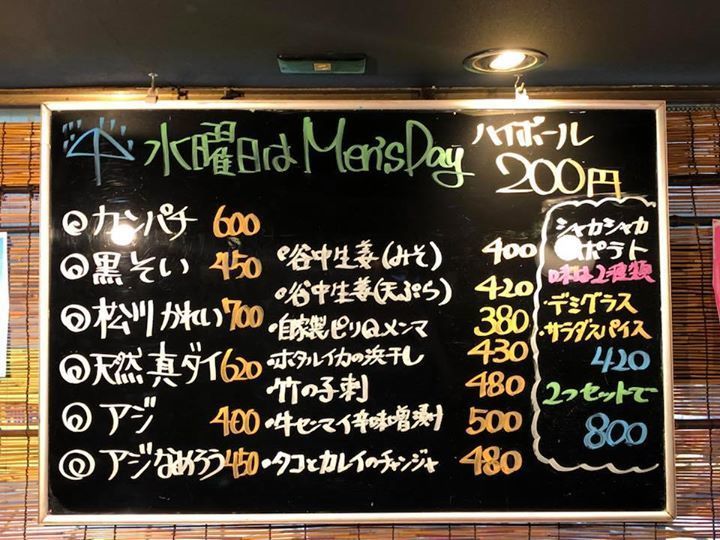 水曜日は Men'sDay ハイボール 200円
◎カンパチ 600
◎黒そい 450
◎松川かれい 700
◎天然真ダイ 620
◎アジ 400
◎アジなめろう 450
・谷中生姜(みそ) 400
・谷中生姜(天ぷら) 420
・自家製ピリ辛メンマ 380
・ホタルイカの浜干し 430
・竹の子刺 480
・牛センマイ辛味噌漬け 500
・タコとカレイのチャンジャ 480
シャカシャカ
ポテト
味は2種類
・デミグラス
・サラダスパイス
420
2つセットで
800